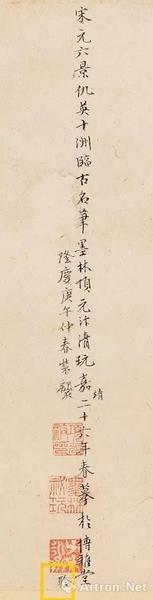 宋元六景仇英十洲臨古名筆墨林項元汴清玩嘉靖二十六年春摹於博雅堂
隆慶庚午仲春裝襲
Artron.Net